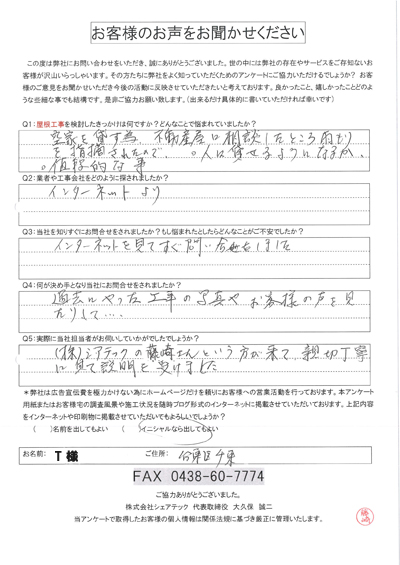 お客様のお声をお聞かせください
この度は弊社にお問い合わせをいただき、誠にありがとうございました。世の中には弊社の存在やサービスをご存知ないお
客様が沢山いらっしゃいます。その方たちに弊社をよく知っていただくためのアンケートにご協力いただけるでしょうか? お客
様のご意見をお聞かせいただき今後の活動に反映させていただきたいと考えております。良かったこと、嬉しかったことどのよ
うな些細な事でも結構です。是非ご協力お願い致します。(出来るだけ具体的に書いていただければ幸いです)
Q1:屋根工事を検討したきっかけは何ですか?どんなことで悩まれていましたか?
空家を貸す為、不動産屋に相談したところ雨もり
を指摘されたので、 。人に貸せるようになるか。
。値段的な事
Q2:業者や工事会社をどのように探されましたか?
インターネットより
Q3:当社を知りすぐにお問合せをされましたか?もし悩まれたとしたらどんなことがご不安でしたか?
インターネットを見てすぐ問い合わせをしました
Q4:何が決め手となり当社にお問合せをされましたか?
過去にやった工事の写真や お客様の声を見
たりして…。
Q5:実際に当社担当者がお伺いしていかがでしたでしょうか?
(株)シェアテックの藤崎さんという方が来て、親切丁寧
に見て説明を受けました
*弊社は広告宣伝費を極力かけない為にホームページだけを頼りにお客様への営業活動を行っております。本アンケート
用紙またはお客様宅の調査風景や施工状況を随時ブログ形式のインターネットに掲載させていただいております。上記内容
をインターネットや印刷物に掲載させていただいてもよろしいでしょうか?
( )名前を出してもよい ( )イニシャルなら出してもよい
お名前: T様 ご住所: 台東区千束
FAX 0438-60-7774
ご協力ありがとうございました。
株式会社シェアテック 代表取締役 大久保 誠二
当アンケートで取得したお客様の個人情報は関係法規に基づき厳正に管理いたします。
藤崎